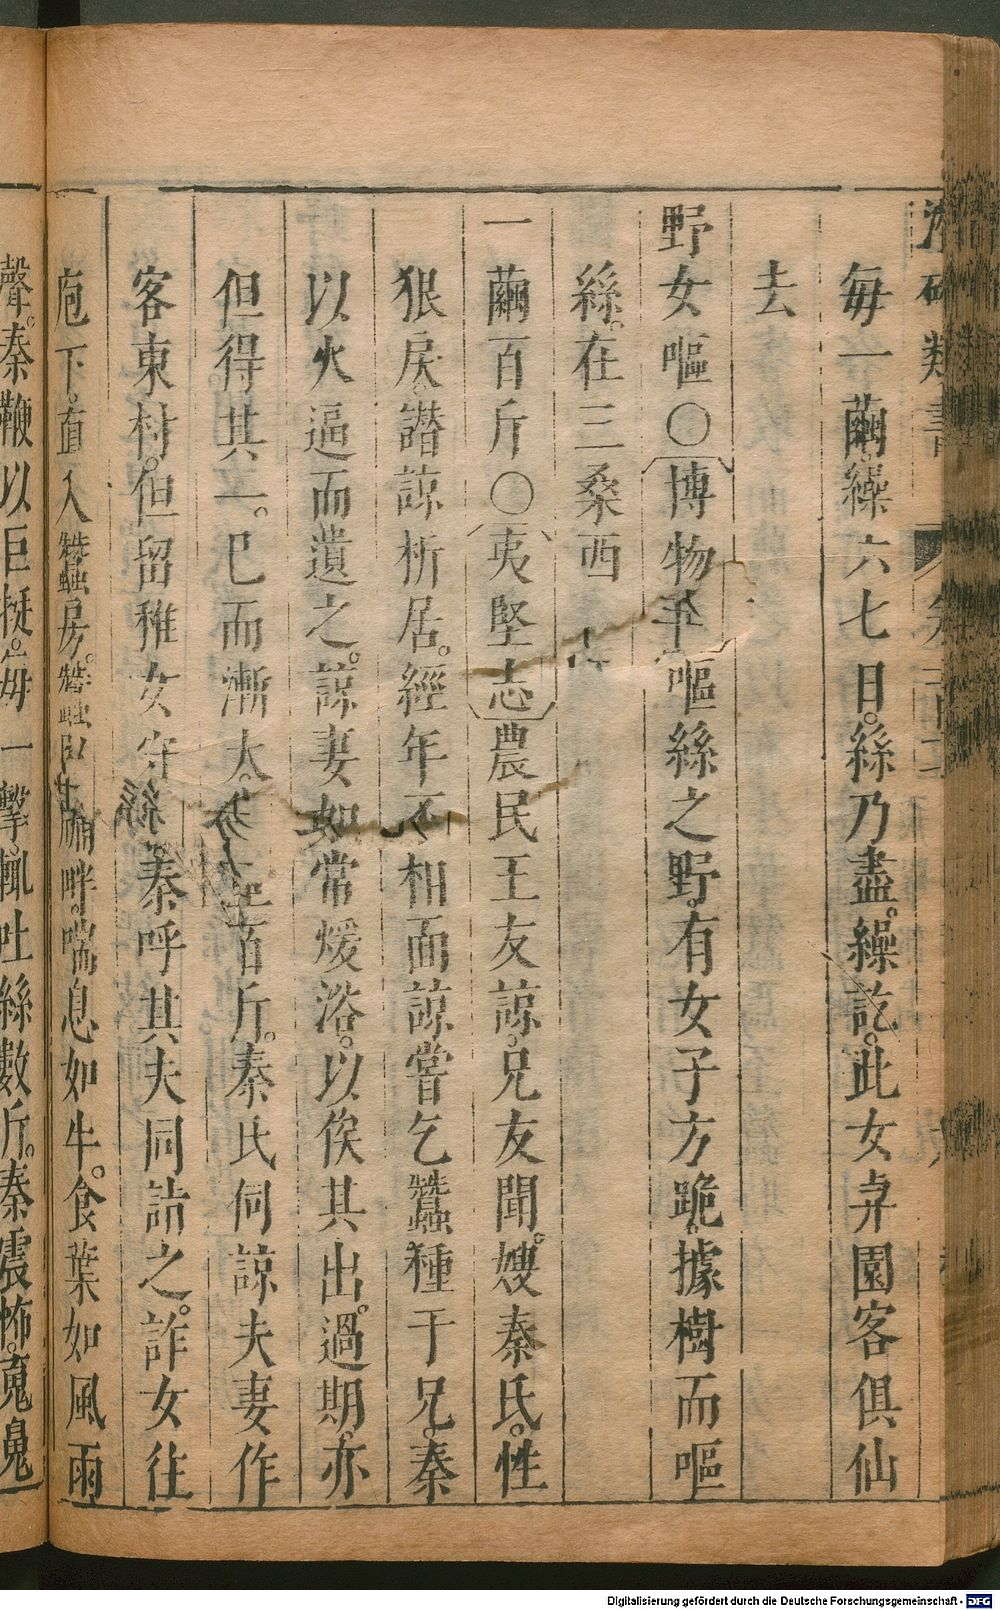 每一繭繰六七日。絲乃盡。繰訖。此女弃園客俱仙
去
野女嘔○博物 嘔絲之野。有女子方跪。據樹而嘔
絲。在三桑西
一繭百斤○夷堅志農民王友諒。兄友聞。嫂秦氏。性
狠戾。譖諒析居。經年不相面諒嘗乞蠶種于兄。秦
以火逼而遺之。諒妻如常煖浴。以俟其出。過期。亦
但得其一。巳而漸大。 百斤。秦氏伺諒夫妻作
客東村。但留稚女守 秦呼其夫同詣之。詐女往
庖下。直入蠶房。蠶臥 畔。喘息如牛。食葉如風雨
聲。秦鞭以巨挺。每一擊。輒吐絲數斤。秦震怖。寬鼻
Digitalisierung gefördert durch die Deutsche Forschungsgemeinschaft - DFG